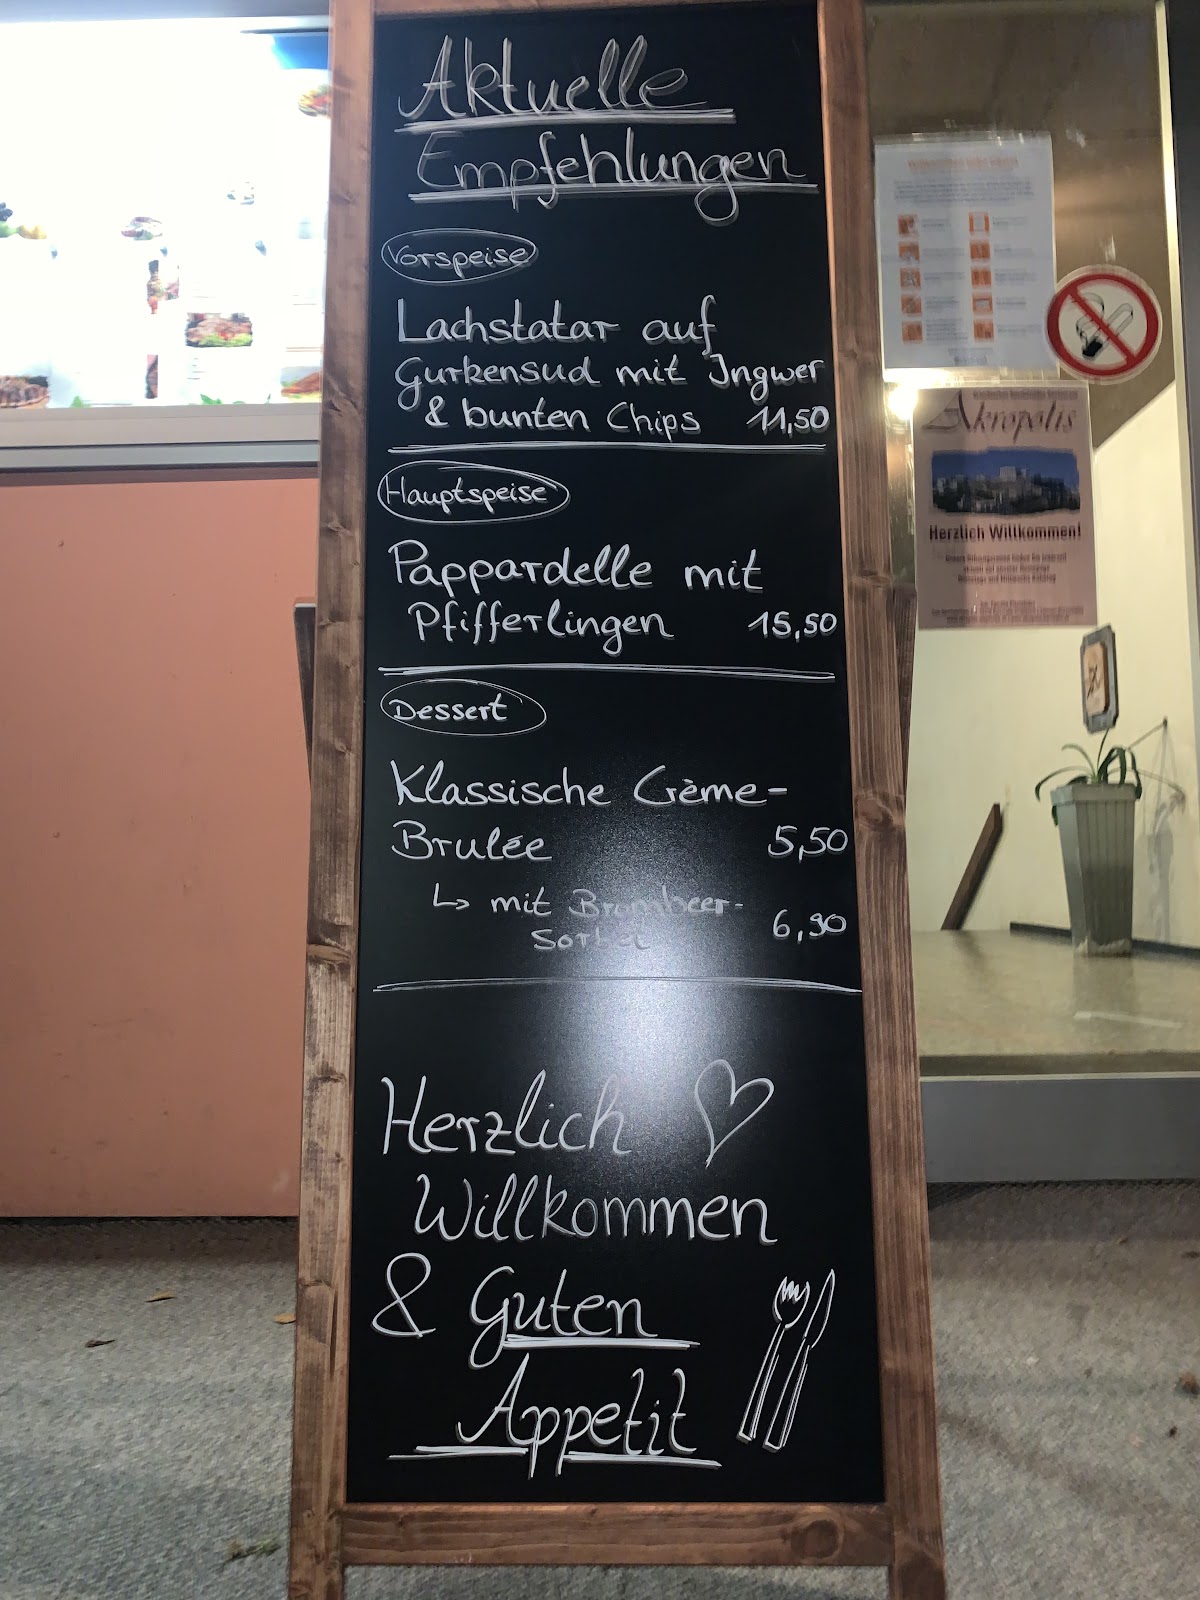 Aktuelle
Empfehlungen
Vorspeise
Lachstatar auf
Gurkensud mit Ingwer
& bunten Chips 11,50
Hauptspeise
Pappardelle mit
Pfifferlingen 15,50
Dessert
Klassische Crème-
Brulée 5,50
↳ mit Brombeer-
Sorbet 6,90
Herzlich ♡
Willkommen
& Guten
Appetit
Akropolis
Herzlich Willkommen!